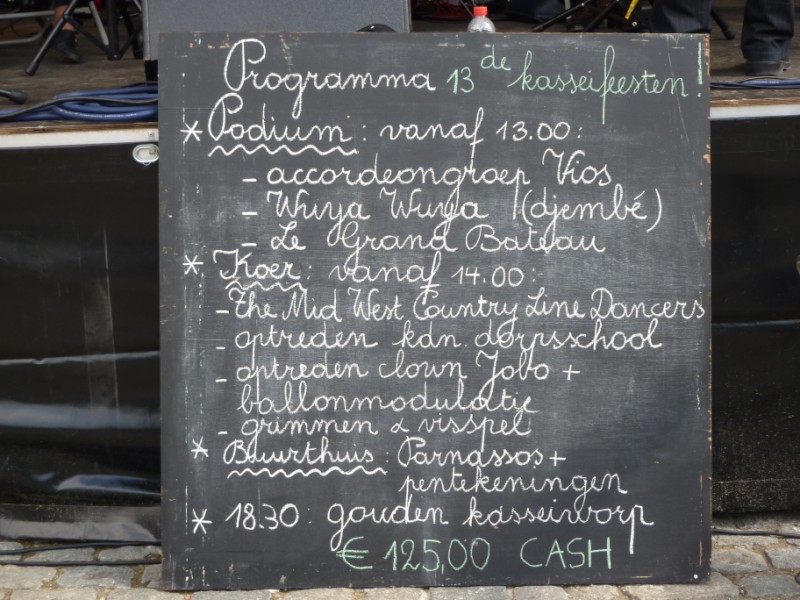 Programma 13de kasseifeesten!
* Podium: vanaf 13.00:
- accordeongroep Vios
- Wuya Wuya (djembé)
- Le Grand Bateau
* Koer: vanaf 14.00:
- The Mid West Country Line Dancers
- optreden kdn. dorpsschool
- optreden clown Jobo +
ballonmodulatie
- grimmen & visspel
* Buurthuis: Parnassos +
pentekeningen
* 18.30: gouden kasseiworp
€ 125,00 CASH